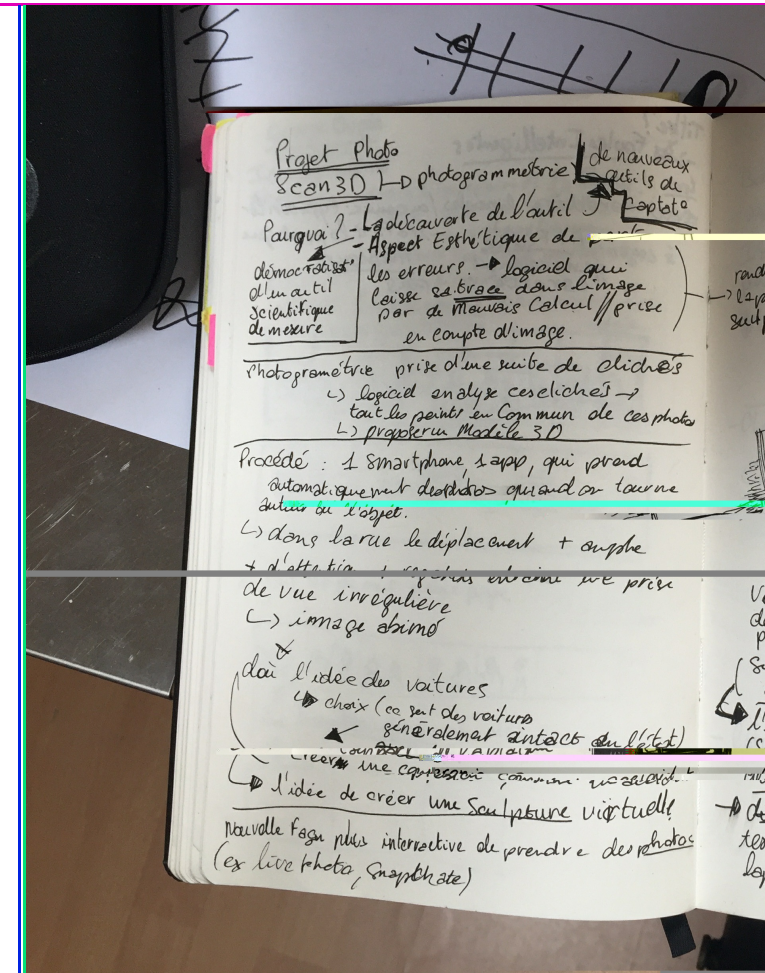 Projet Photo
Scan3D photogrammetrie
de nouveaux
outils de
Captat°
Pourquoi ? - La découverte de l'outil
- Aspect Esthétique de
les erreurs. logiciel qui
laisse sa trace dans l'image
par de Mauvais Calcul // prise
en compte d'image.
démocratisat°
d'un outil
scientifique
de mesure
Photogramétrie prise d'une suite de clichés
logiciel analyse ces clichés
tout les points en Commun de ces photos
proposer un Modèle 3D
Procédé : 1 Smartphone, 1 app, qui prend
automatiquement des photos quand on tourne
autour de l'objet.
dans la rue le déplacement +
prise
de vue irrégulière
image abimé
d'où l'idée des voitures
choix (ce sont des voitures
généralement intact
créer une
l'idée de créer une Sculpture virtuelle
Nouvelle façon plus interractive de prendre des photos
(ex live photo, Snapchate)